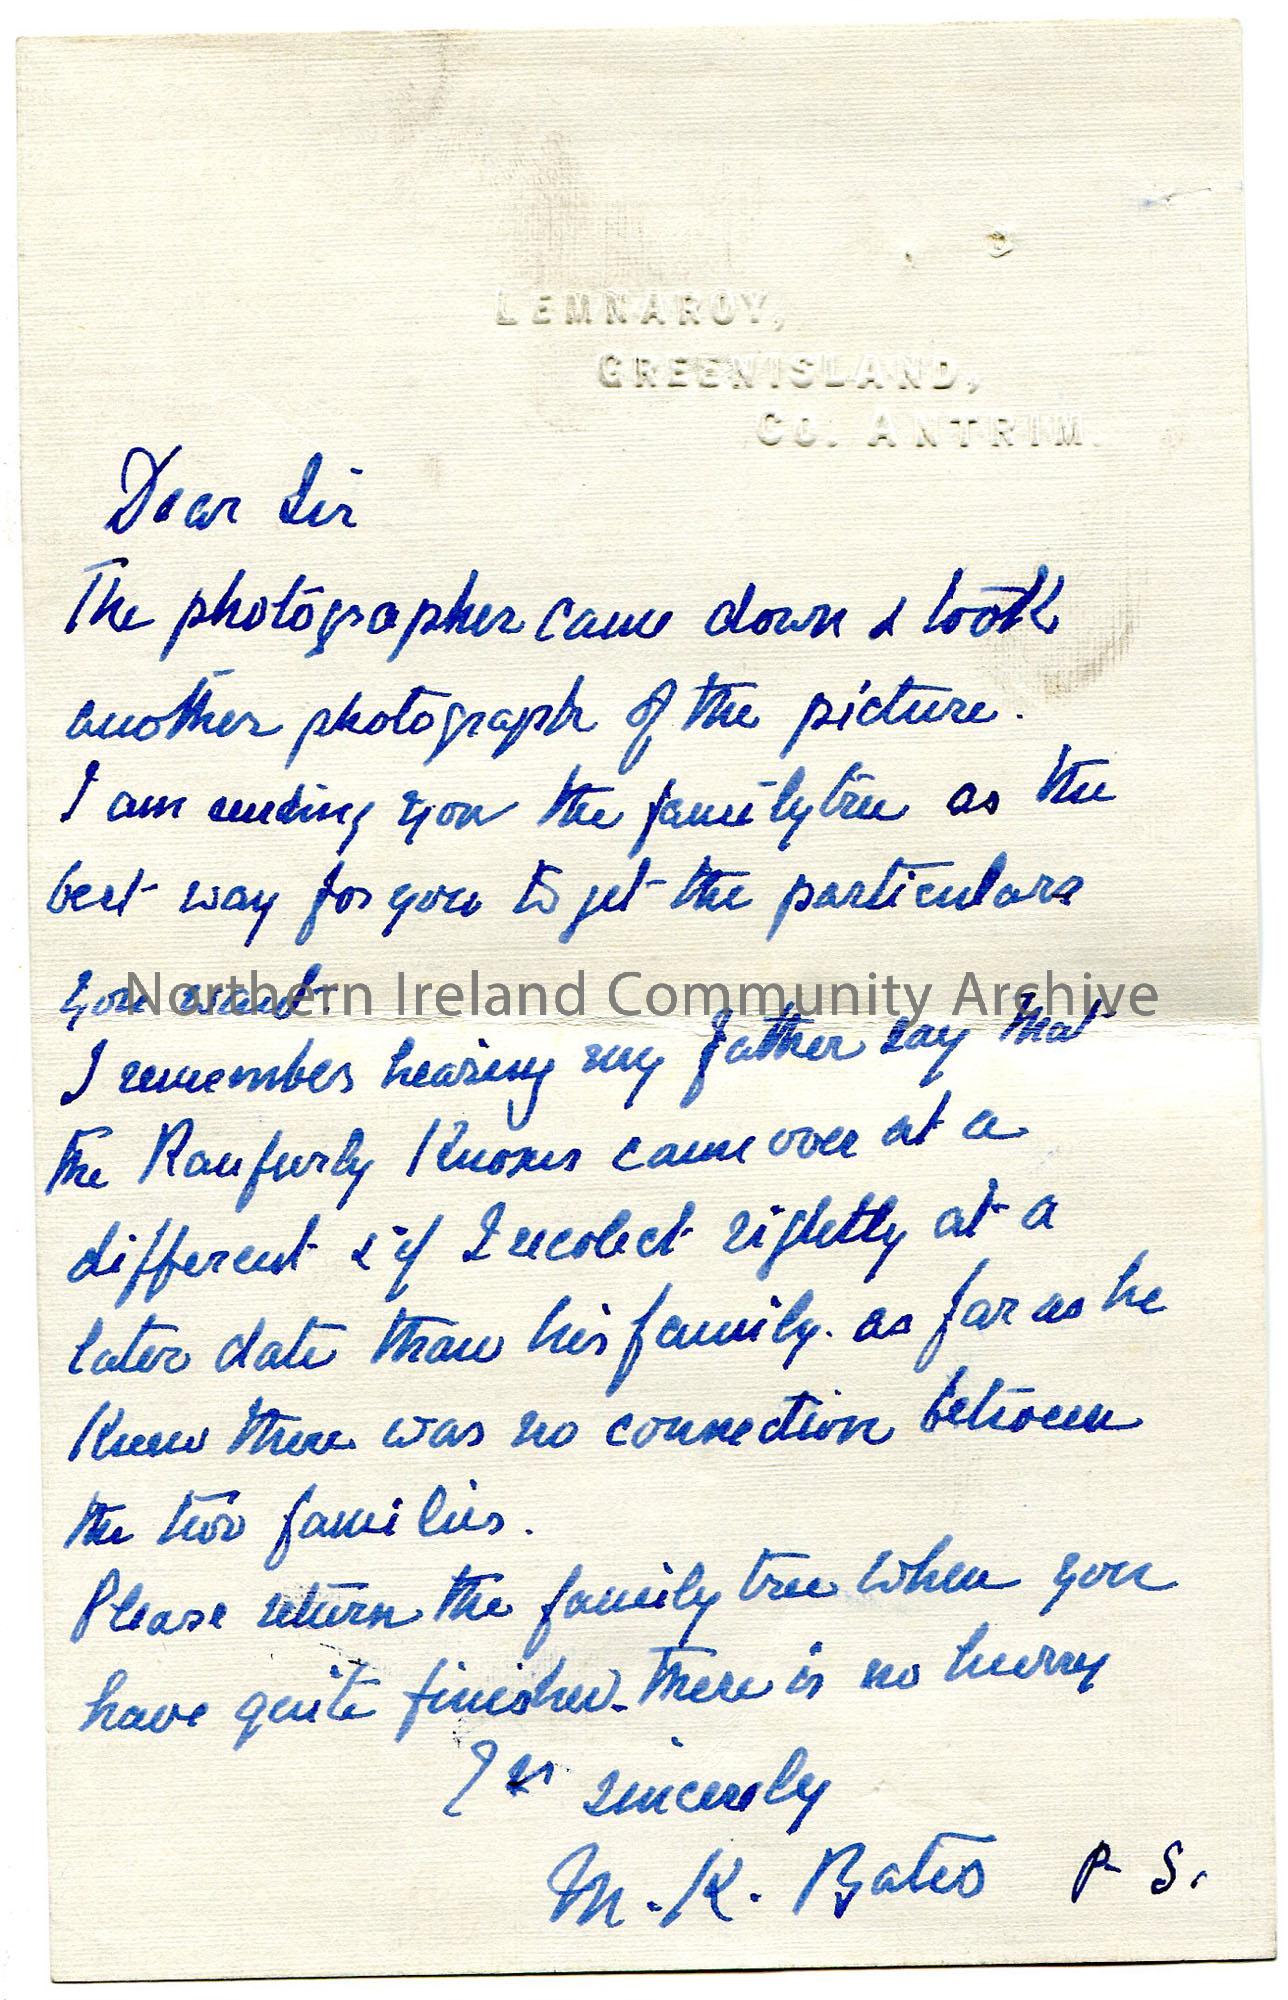 LEMNAROY,
GREENISLAND,
CO. ANTRIM.
Dear Sir
The photographer came down & took
another photograph of the picture.
I am sending you the family tree as the
best way for you to get the particulars
you want.
Northern Ireland Community Archive
I remember hearing my father say that
the Ranfurly Knoxes came over at a
different & if I recolect rightly at a
later date than his family. as far as he
knew there was no connection between
the two families.
Please return the family tree when you
have quite finished. There is no hurry
Yrs sincerely
M. K. Bates P. S.